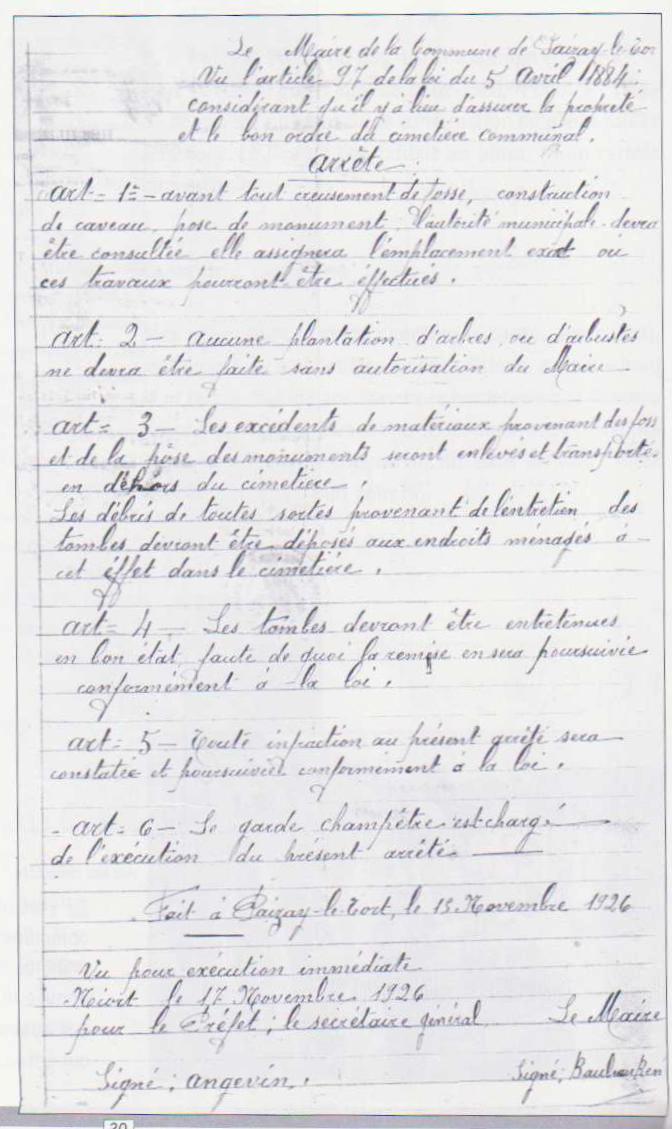 Le Maire de la Commune de Paizay-le-Tor
Vu l'article 97 de la loi du 5 Avril 1884;
considérant qu'il y à lieu d'assurer la propreté
et le bon ordre du cimetière communal.
arrête
art= 1= - avant tout creusement de fosse, construction
de caveau, pose de monument, l'autorité municipale devra
être consultée elle assignera l'emplacement exact ou
ces travaux pourront être éffectués.
art= 2 - aucune plantation d'arbres ou d'arbustes
ne devra être faite sans autorisation du Maire
art= 3 - Les excédents de matériaux provenant des foss
et de la pose des monuments seront enlevés et transportés
en déhors du cimetière.
Les débris de toutes sortes provenant de l'entretien des
tombes devront être déposés aux endroits ménagés à
cet éffet dans le cimetière.
art= 4 - Les tombes devront être entretenues
en bon état, faute de quoi la remise en sera poursuivie
conformément à la loi.
art= 5 - Toute infraction au présent arrêté sera
constatée et poursuivie conformément à la loi.
- art= 6 - Le garde champêtre est chargé
de l'exécution du présent arrêté
Fait à Paizay-le-Tort, le 13 Novembre 1926
Vu pour exécution immédiate
Niort le 17 Novembre 1926
pour le Préfet; le secrétaire général Le Maire
Signé: angevin. Signé;
30